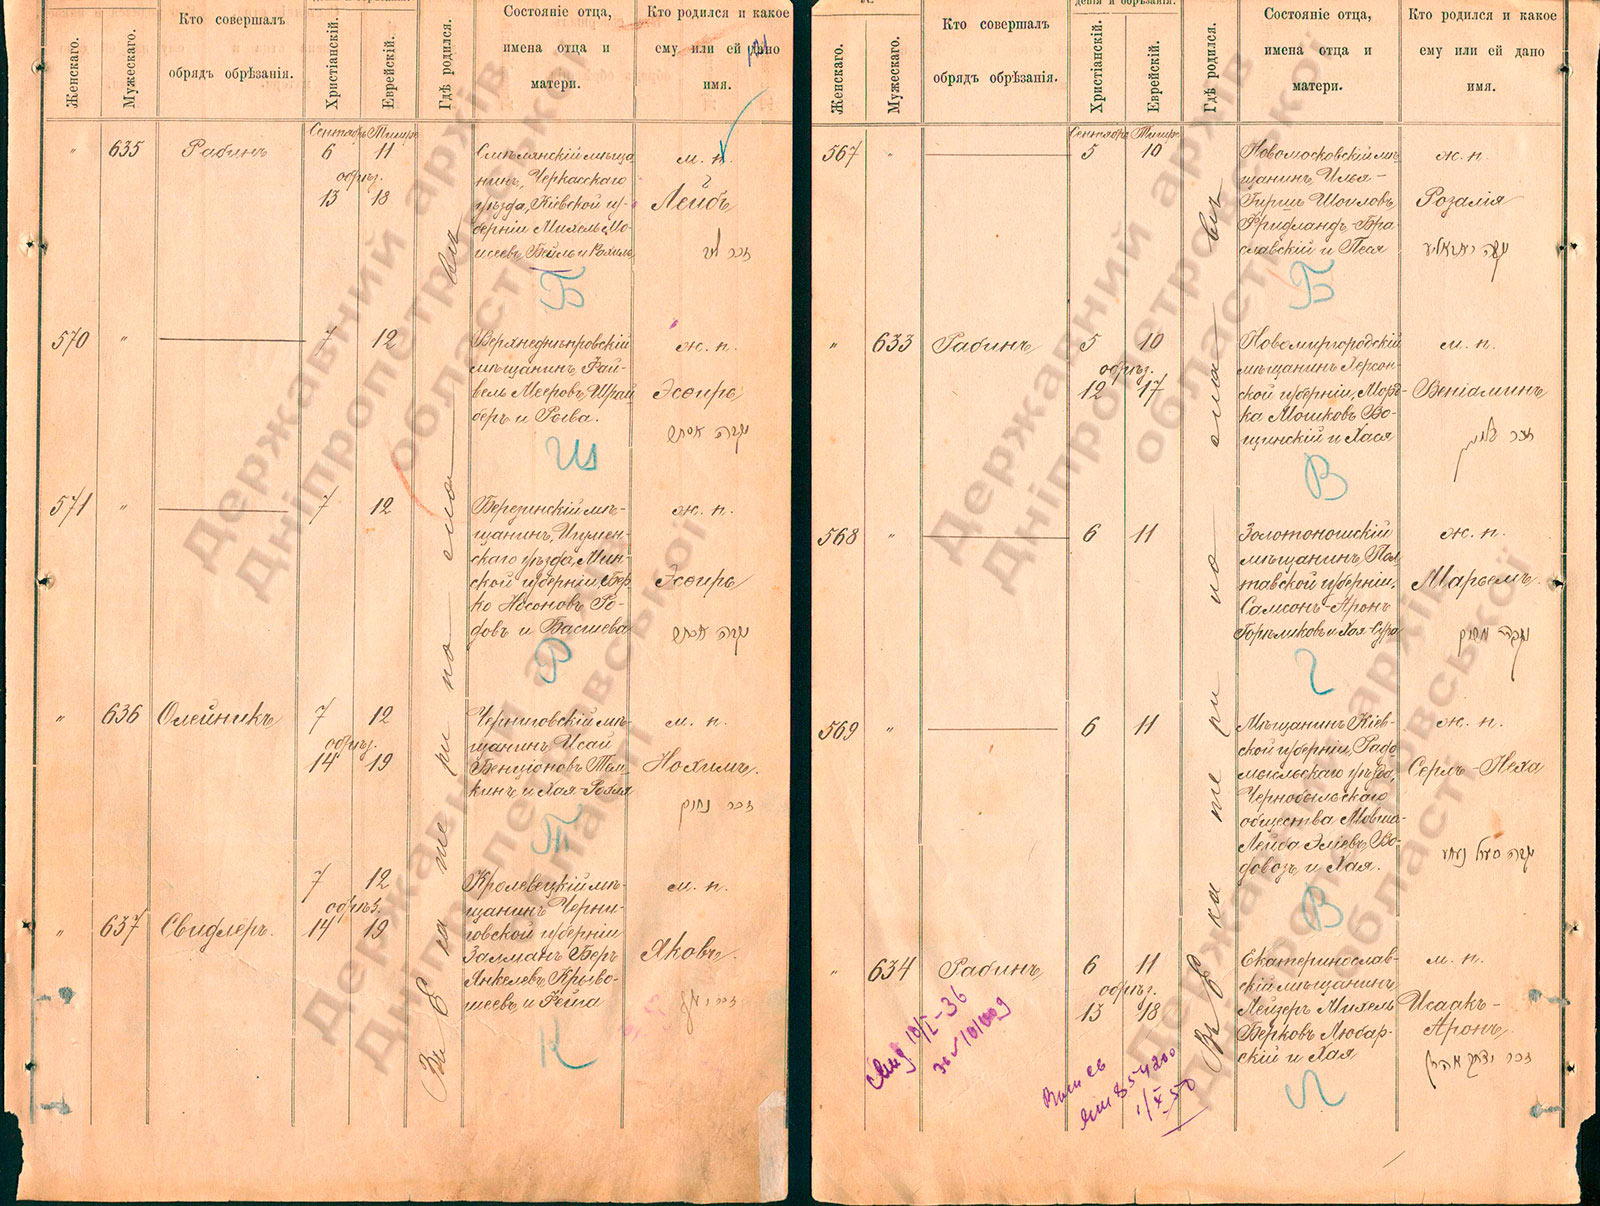 Женскаго.
Мужескаго.
Кто совершалъ
обрядъ обрѣзанія.
Христіанскій.
Еврейскій.
Гдѣ родился.
Состояніе отца,
имена отца и
матери.
Кто родился и какое
ему или ей дано
имя.
Сентябрь Тишре
" 635 Рабинъ 6 11
обрѣз.
13 18
Смѣлянскій мѣща
нинъ, Черкасскаго
уѣзда, Кіевской гу-
берніи Михель Мо-
исеевъ Бейль и Рахиль
м. п.
Лейбъ
זכר לייב
Б
570 " 7 12
Верхнеднѣпровскій
мѣщанинъ Фай-
вель Мееровъ Шрай
беръ и Рыва.
ж. п.
Эсѳирь
נקבה אסתר
Ш
571 " 7 12
Березинскій мѣ-
щанинъ, Игумен-
скаго уѣзда, Мин-
ской губерніи, Бер-
ко Носоновъ Ро-
довъ и Басшева
ж. п.
Эсѳирь
נקבה אסתר
Р
" 636 Олейникъ 7 12
обрѣз.
14 19
Черниговскій мѣ-
щанинъ Исай
Бенціоновъ Тем-
кинъ и Хая-Рохля
м. п.
Нохимъ.
זכר נחום
Т
" 637 Свидлеръ. 7 12
обрѣз.
14 19
Кролевецкій мѣ-
щанинъ Черни-
говской губерніи
Залманъ Беръ
Янкелевъ Крыво-
шеевъ и Фейга
м. п.
Яковъ.
К
Въ Екатеринославѣ
Женскаго.
Мужескаго.
Кто совершалъ
обрядъ обрѣзанія.
денія и обрѣзанія.
Христіанскій.
Еврейскій.
Гдѣ родился.
Состояніе отца,
имена отца и
матери.
Кто родился и какое
ему или ей дано
имя.
Сентябрь Тишре
567 " 5 10
Новомосковскій мѣ
щанинъ, Илья-
Гиршъ Шоиловъ
Фридландъ-Бра-
славскій и Песя
ж. п.
Розалія
Б
" 633 Рабинъ 5 10
обрѣз.
12 17
Новомиргородскій
мѣщанинъ Херсон-
ской губерніи, Морд-
ка Мошковъ Во-
щинскій и Хася
м. п.
Веніаминъ
В
568 " 6 11
Золотоношскій
мѣщанинъ, Пол-
тавской губерніи,
Самсонъ-Аронъ
Горѣликовъ и Хая-Сура
ж. п.
Марьемъ.
Г
569 " 6 11
Мѣщанинъ Кіев-
ской губерніи, Радо
мысльскаго уѣзда,
Чернобыльскаго
общества Мовша-
Лейба Эліевъ Во-
довозъ и Хая.
ж. п.
Серль-Неха
В
" 634 Рабинъ 6 11
обрѣз.
13 18
Екатеринослав-
скій мѣщанинъ
Лейзеръ Михель
Берковъ Любар-
скій и Хая
м. п.
Исаакъ-
Аронъ.
זכר יצחק אהרן
Л
Въ Екатеринославѣ
Державний архів
Дніпропетровської
області